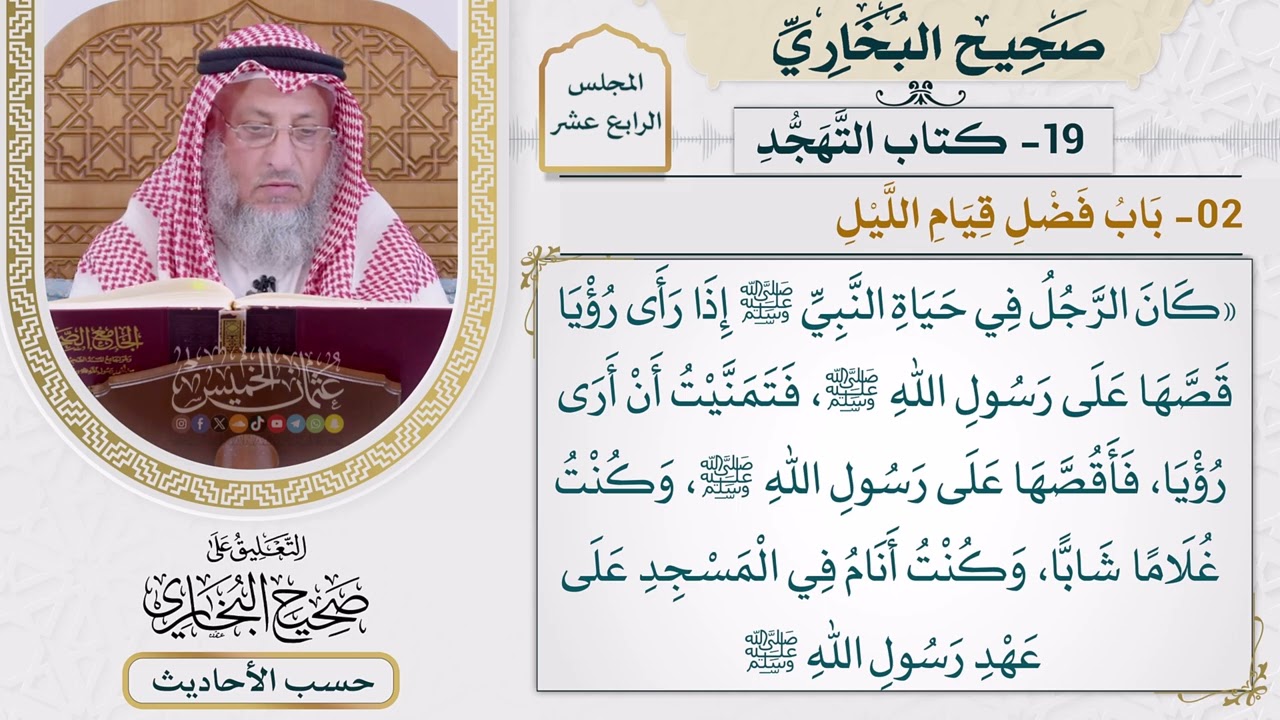 صَحِيح البُخَارِيِّ
المجلس
الرابع عشر
19- كتاب التَّهَجُّدِ
02- بَابُ فَضْلِ قِيَامِ اللَّيْلِ
«كَانَ الرَّجُلُ فِي حَيَاةِ النَّبِيِّ ﷺ إِذَا رَأَى رُؤْيَا
قَصَّهَا عَلَى رَسُولِ اللهِ ﷺ، فَتَمَنَّيْتُ أَنْ أَرَى
رُؤْيَا، فَأَقُصَّهَا عَلَى رَسُولِ اللهِ ﷺ، وَكُنْتُ
غُلَامًا شَابًّا، وَكُنْتُ أَنَامُ فِي الْمَسْجِدِ عَلَى
عَهْدِ رَسُولِ اللهِ ﷺ
عُثمان الخميس
التَّعْلِيقُ عَلَى
صَحِيحِ البُخَارِي
حسب الأحاديث